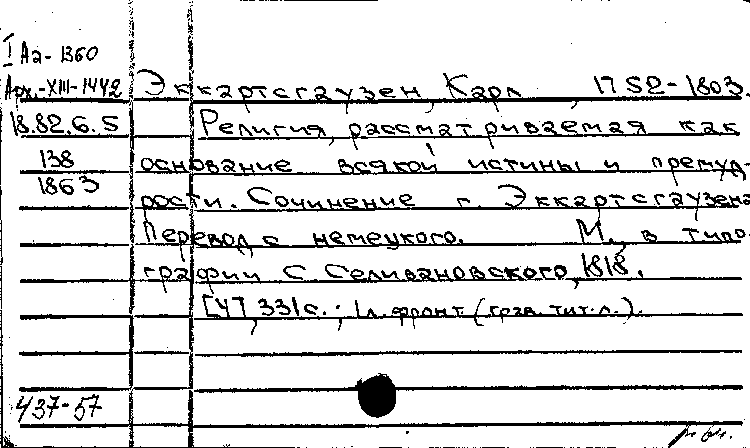 I Аа-1360
Арх.-XIII-1442 Эккартсгаузен, Карл, 1752-1803.
18.82.6.5 Религия, рассматриваемая как
138 основание всякой истины и премуд-
1863 рости. Сочинение г. Эккартсгаузена
Перевод с немецкого. М., в типо-
графии С Селивановского, 1818.
[4], 331с.; 1л. фронт (грав. тит.л.).
437-57